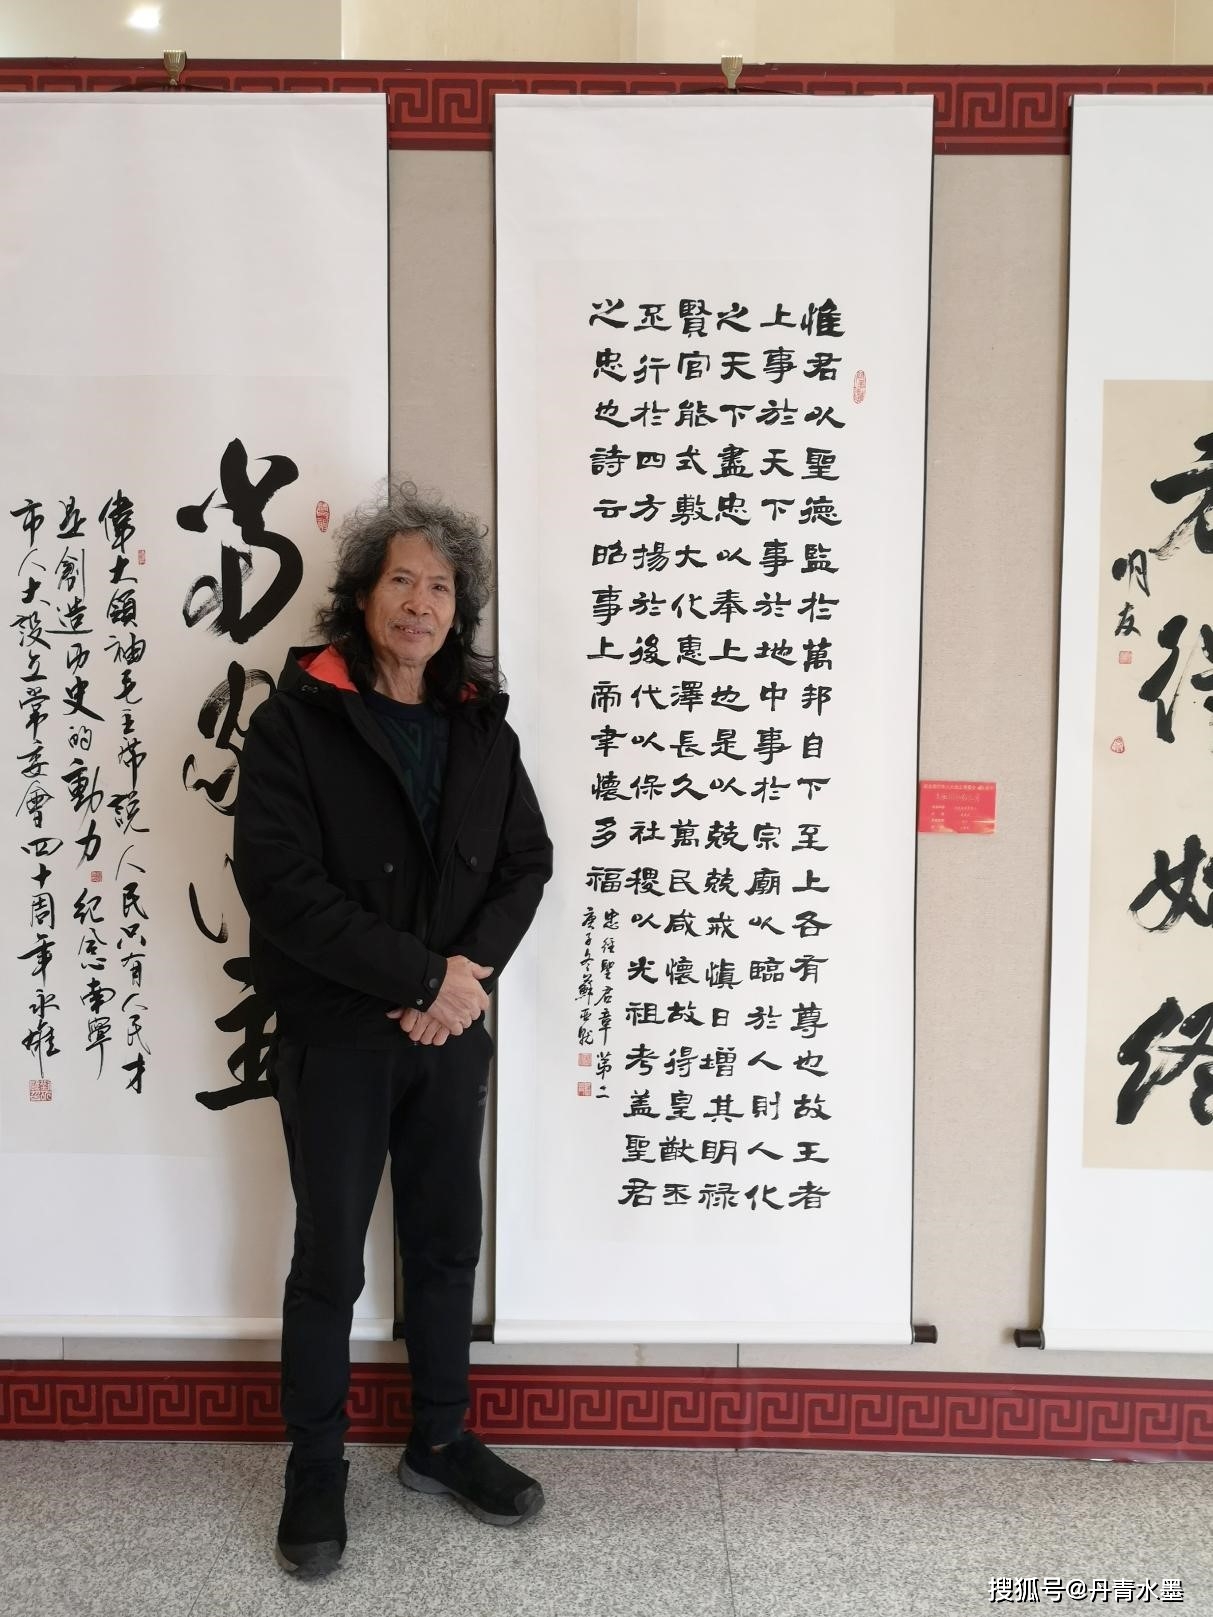 明友
始終
惟君以聖德監於萬邦自下至上各有尊也故王者
上事於天下事於地中事於宗廟以臨於人則人化
之天下盡忠以奉上也是以兢兢戒慎日增其明祿
賢官能式敷大化惠澤長久萬民咸懷故得皇猷丕
丕行於四方揚於後代以保社稷以光祖考盖聖君
之忠也詩云昭事上帝聿懷多福
忠經聖君章第二
庚子冬蘇亞
當家作主
偉大領袖毛主席說人民只有人民才
是創造历史的動力紀念南寧
市人大設立常委會四十周年永雄
搜狐号@丹青水墨